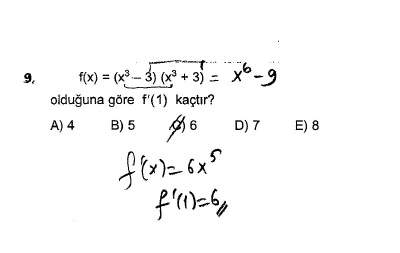 9. f(x) = (x³ – 3) (x³ + 3) = x⁶ - 9
olduğuna göre f'(1) kaçtır?
A) 4 B) 5 C) 6 D) 7 E) 8
f'(x) = 6x⁵
f'(1) = 6